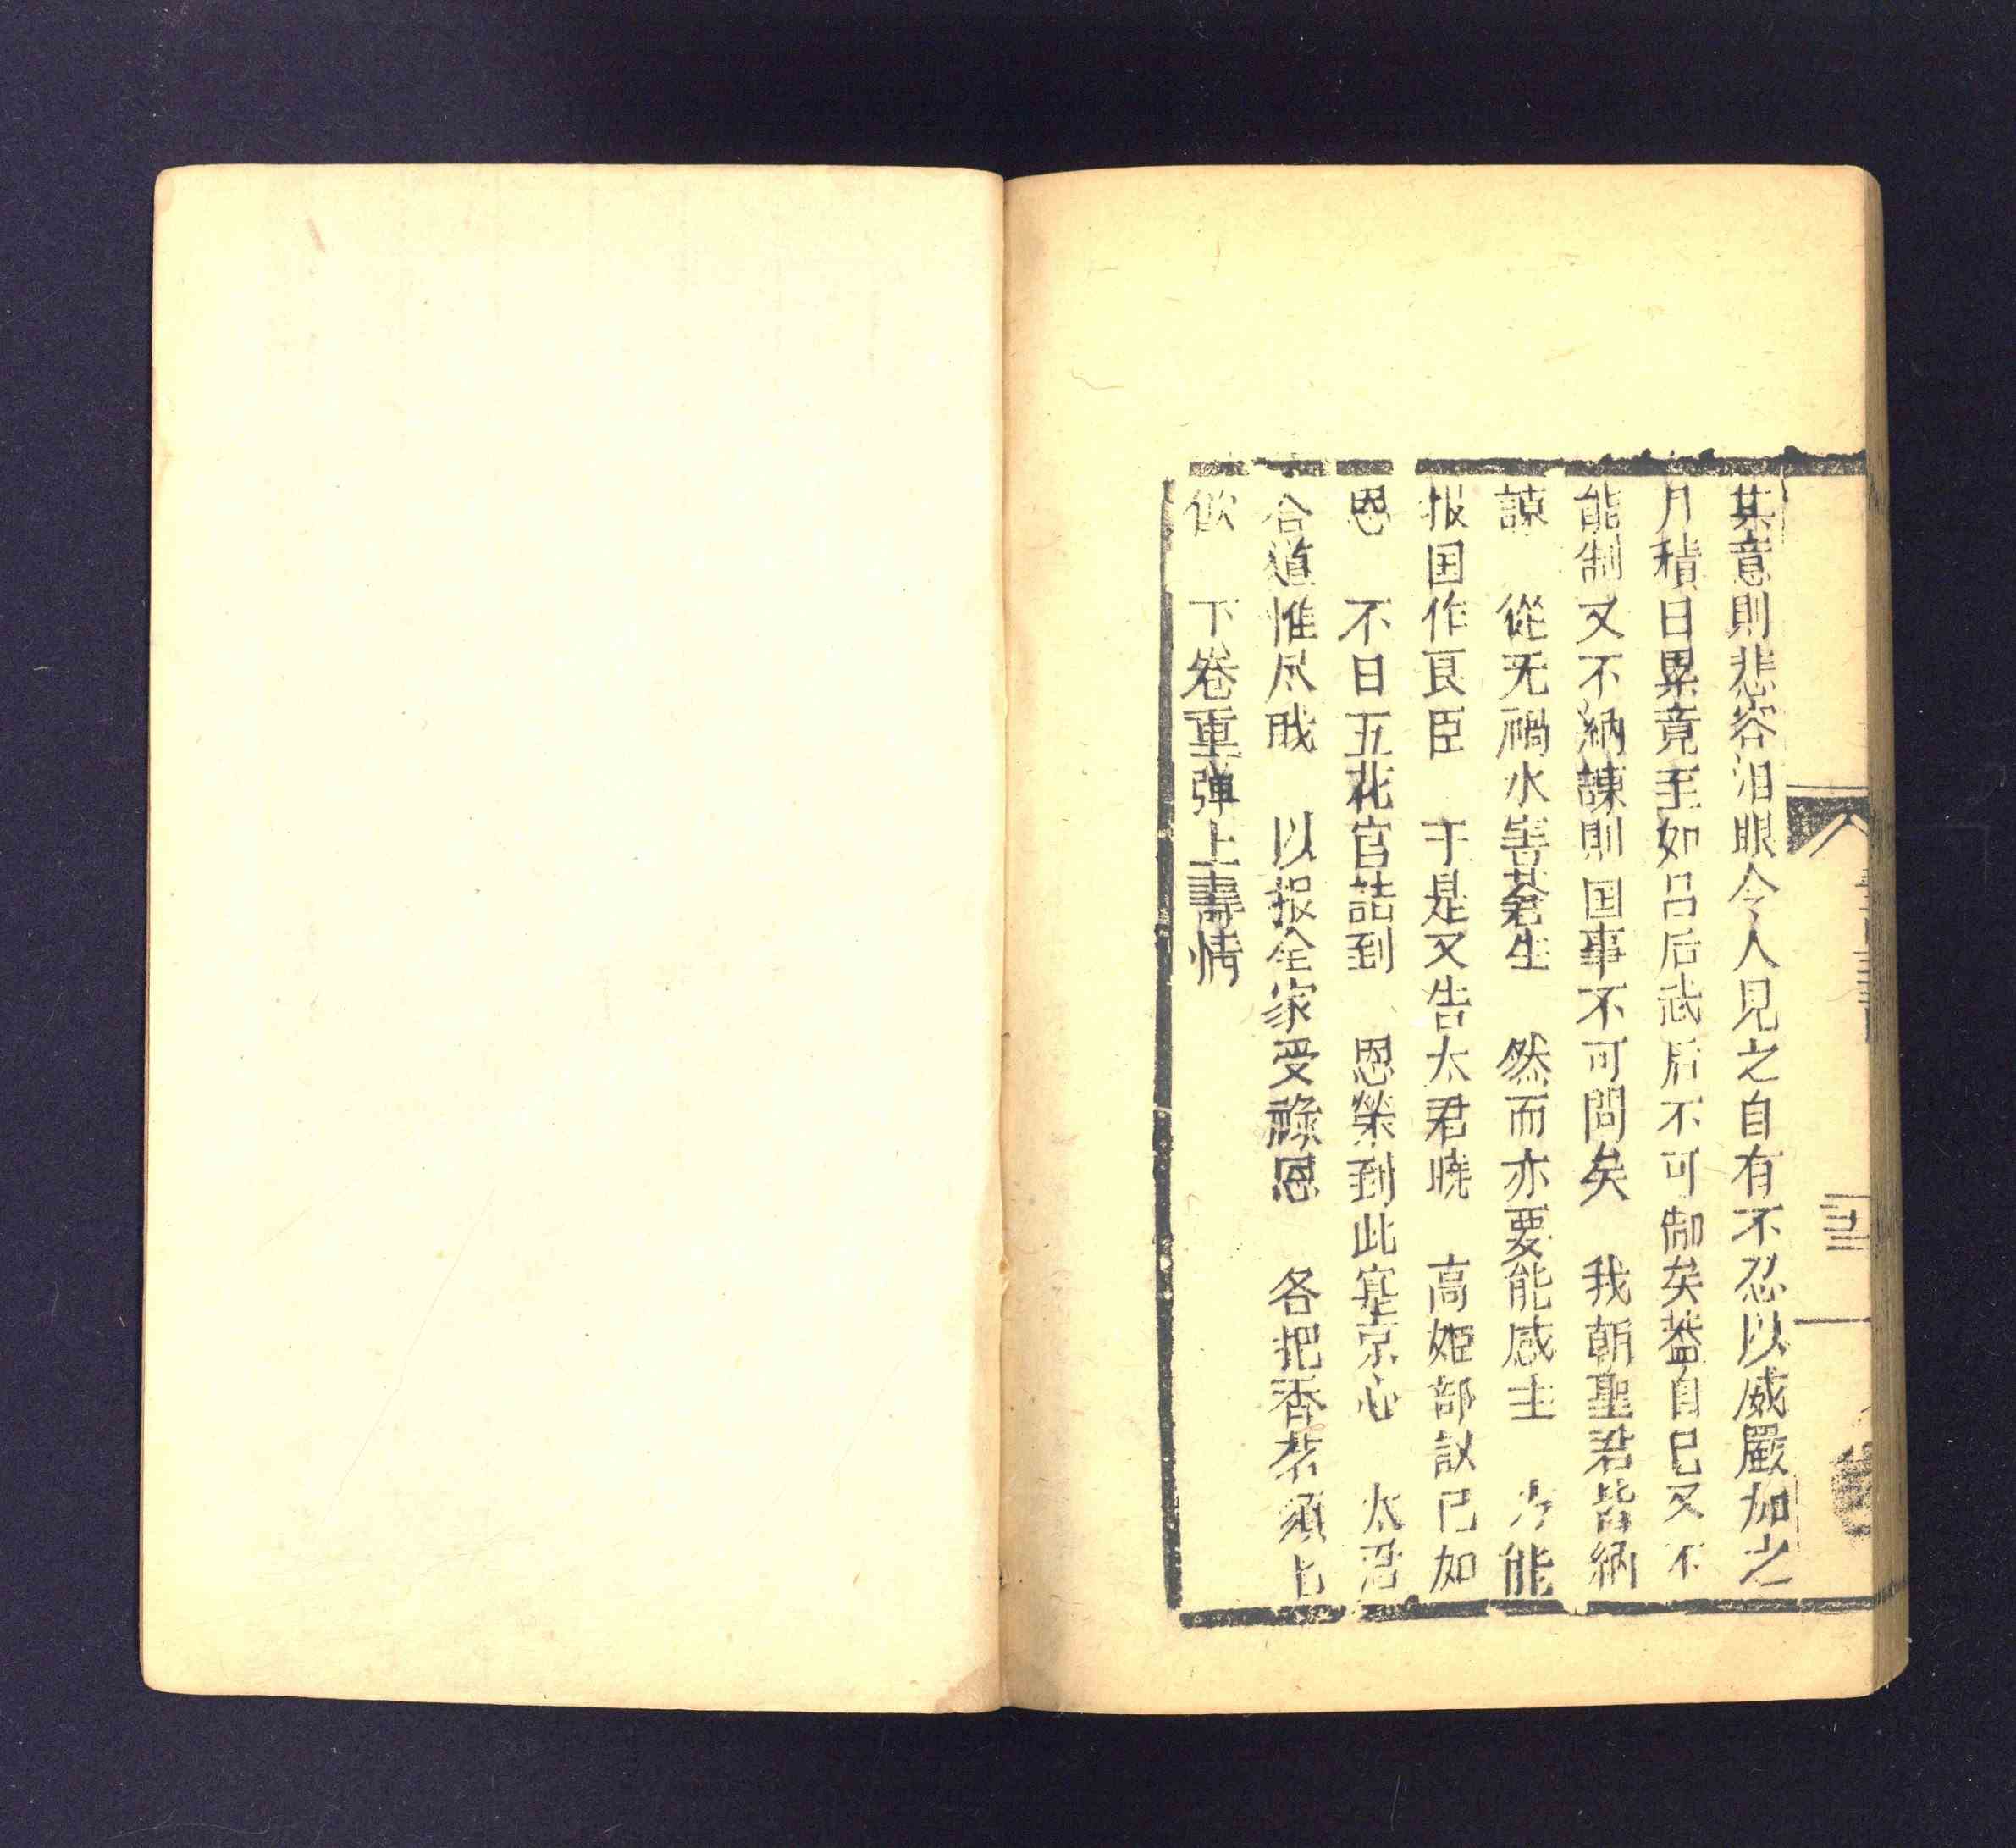 其意則悲容泪眼令人見之自有不忍以威嚴加之
月積日累竟至如吕后武后不可制矣盖自己又不
能制又不納諫則国事不可問矣　我朝聖君皆納
諒　從无禍水害蒼生　然而亦要能感主　方能
报国作良臣　于是又告太君曉　高姬部議已如
恩　不日五花官誥到　恩榮到此寔京心　太君
合道惟尽哉　以报全家受祿恩　各把香茶須上
飲　下卷重弹上壽情